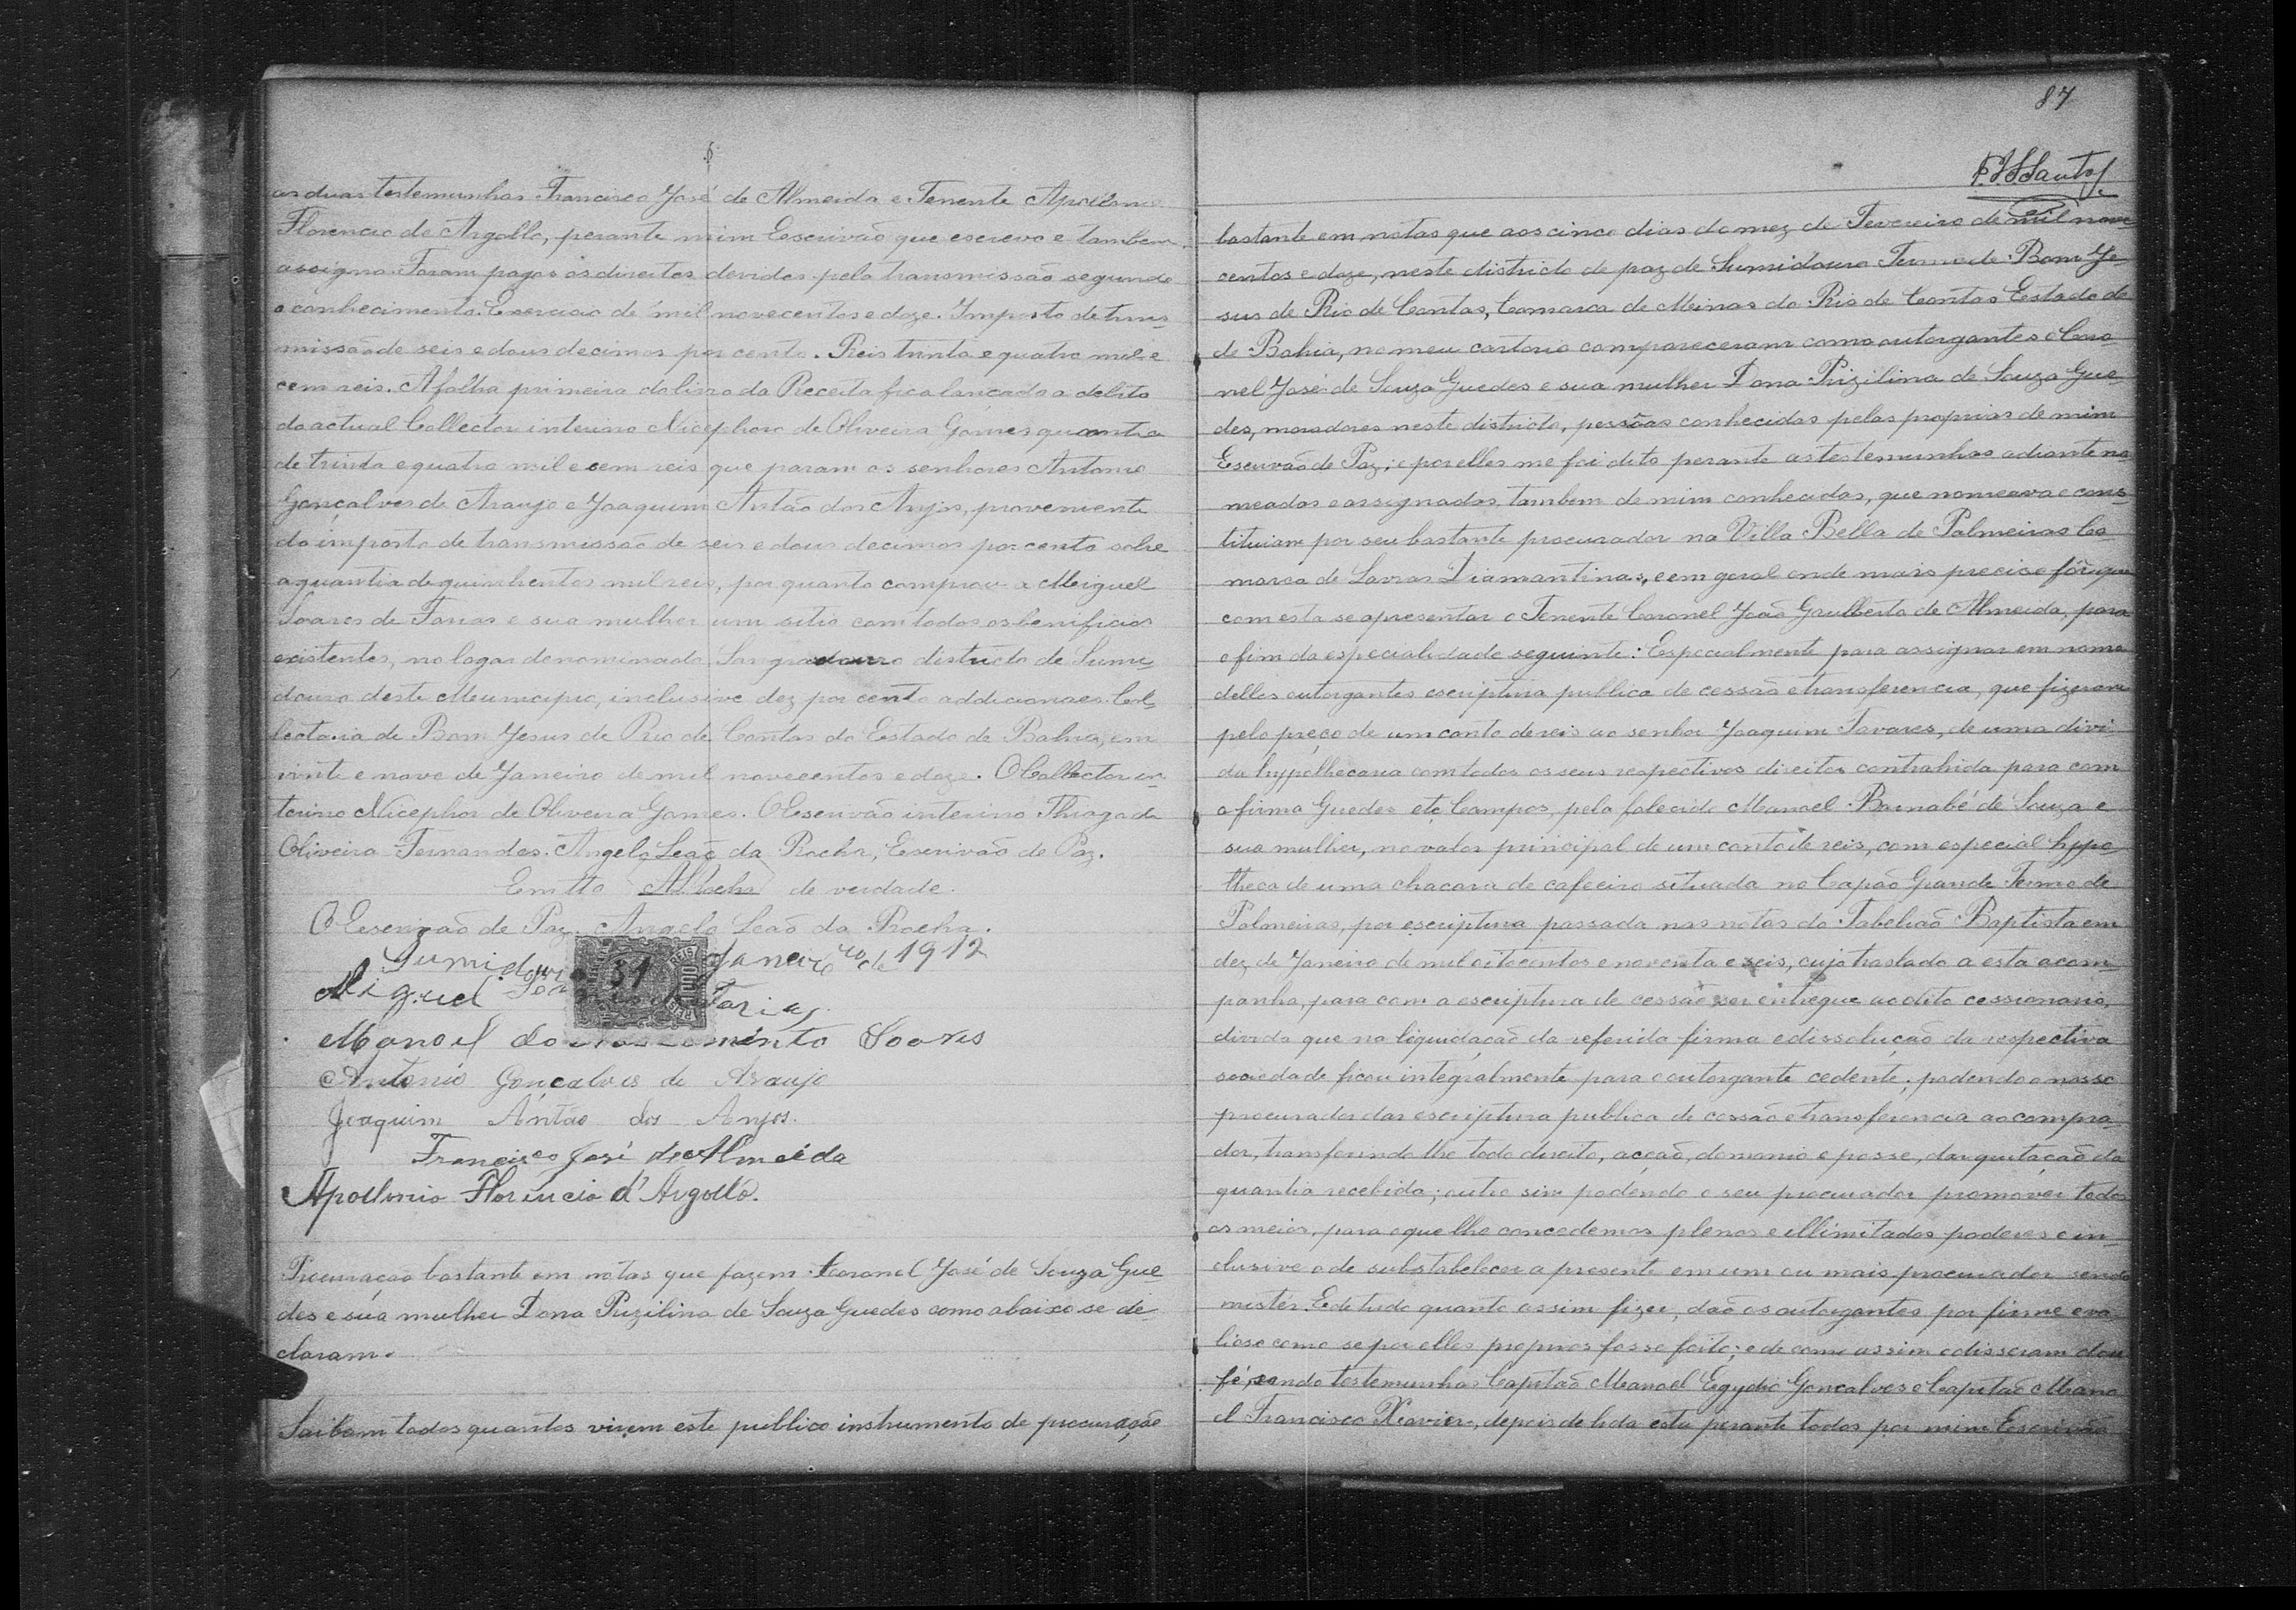 as duas testemunhas Francisco José de Almeida e Tenente Apollonio
Florencio de Argollo, perante mim Escrivão que escrevo e tambem
assigno. Foram pagos os direitos devidos pela transmissão segundo
o conhecimento. Exercicio de mil novecentos e doze. Imposto de trans-
missão de seis e dous decimos por cento. Reis trinta e quatro mil e
cem reis. A folha primeira do livro da Receita fica lançado a debito
do actual Collector interino Nicephoro de Oliveira Gomes quantia
de trinta e quatro mil e cem reis que param os senhores Antonio
Gonçalves de Araujo e Joaquim Antão dos Anjos, proveniente
do imposto de transmissão de seis e dous decimos por cento sobre
a quantia de quinhentos mil reis, por quanto comprou a Meiguel
Soares de Farias e sua mulher um sitio com todos os beneficios
existentes, no logar denominado Sangradouro districto de Sumi
douro deste Municipio, inclusive dez por cento addicionaes. Col-
lectoria de Bom Jesus de Rio de Contas do Estado da Bahia, em
vinte e nove de Janeiro de mil novecentos e doze. O Collector in-
terino Nicephor de Oliveira Gomes. O Escrivão interino Thiago de
Oliveira Fernandes. Angelo Leão da Rocha, Escrivão de Paz.
Em tto ALRocha de verdade.
O Escrivão de Paz. Angelo Leão da Rocha.
Sumidouro 31 Janeiro de 1912
Miguel Soares de Farias
Manoel do Nascimento Soares
Antonio Gonçalves de Araujo
Joaquim Antão dos Anjos.
Francisco José de Almeida
Apollonio Florencio d'Argollo.
Procuração bastante em notas que fazem Coronel José de Souza Gue
des e sua mulher Dona Prizilina de Souza Guedes como abaixo se de-
claram.
Saibam todos quantos virem este publico instrumento de procuração
87
bastante em notas que aos cinco dias do mez de Fevereiro de mil nove
centos e doze, neste districto de paz de Sumidouro Termo de Bom Je-
sus de Rio de Contas, Comarca de Meinas do Rio de Contas Estado da
de Bahia, no meu cartorio compareceram como outorgantes o Coro-
nel José de Souza Guedes e sua mulher Dona Prizilina de Souza Gue-
des, moradores neste districto, pessôas conhecidas pelas proprias de mim
Escrivão de Paz; e por elles me foi dito perante as testemunhas adiante no-
meadas e assignadas, tambem de mim conhecidas, que nomeava e cons-
tituiam por seu bastante procurador na Villa Bella de Palmeiras Co-
marca de Lavras Diamantinas, e em geral onde mais preciso fôr, que
com esta se apresentar o Tenente Coronel João Gaulberto de Almeida, para
o fim da especialidade seguinte: Especialmente para assignar em nome
delles outorgantes escriptura publica de cessão e transferencia, que fizeram
pelo preço de um conto de reis ao senhor Joaquim Tavares, de uma divi-
da hypothecaria com todos os seus respectivos direitos contrahida para com
a firma Guedes etc Campos, pelo falecido Manoel Barnabé de Souza e
sua mulher, no valor principal de um conto de reis, com especial hypo-
theca de uma chacara de cafeeiro situada no Capão Grande Termo de
Palmeiras, por escriptura passada nas notas do Tabelião Baptista em
dez de Janeiro de mil oitocentos e noventa e seis, cujo traslado a esta acom-
panha, para com a escriptura de cessão ser entregue ao dito cessionario,
divida que na liquidação da referida firma e dissolução da respectiva
sociedade ficou integralmente para o outorgante cedente; podendo o nosso
procurador dar escriptura publica de cessão e transferencia ao compra-
dor, transferindo lhe todo direito, acção, domonio e posse, dar quitação da
quantia recebida; outro sim podendo o seu procurador promover todos
os meios, para o que lhe concedemos plenos e illimitados poderes e in-
clusive o de substabelecer a presente em um ou mais procurador sendo
mistér. E de tudo quanto assim fizer, dão os outorgantes por firme e va-
lioso como se por elles proprios fosse feito; e de como assim o disseram dou
fé, sendo testemunhas Capitão Manoel Egydio Gonçalves e Capitão Mano
el Francisco Xavier, depois de lida esta perante todos por mim Escrivão